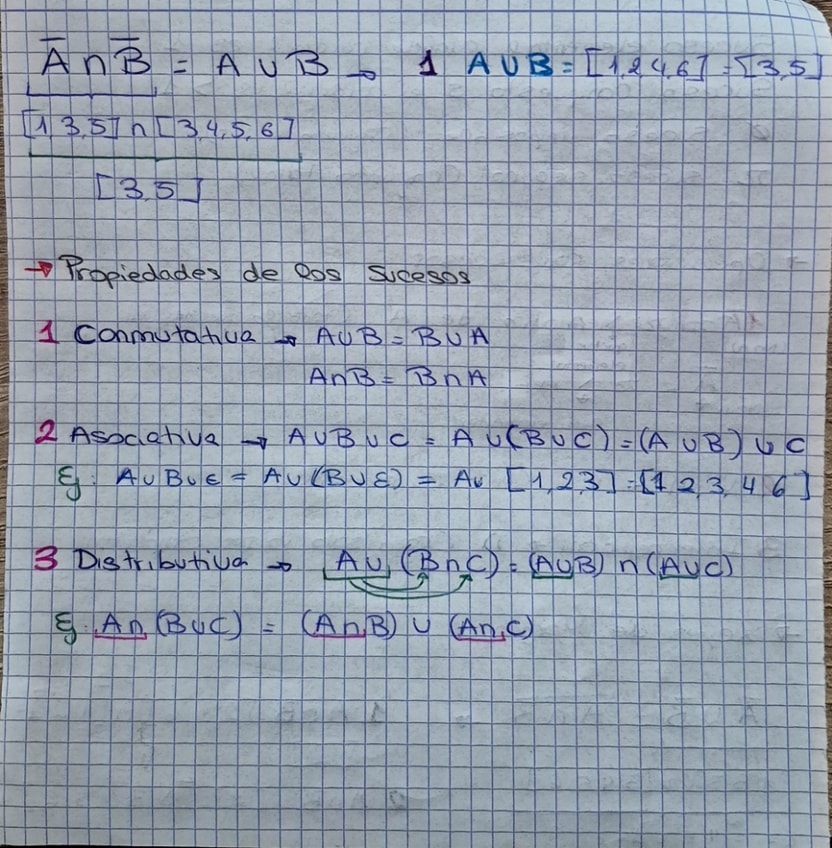 A̅ ∩ B̅ = A ∪ B → 1 A∪B = [1,2,4,6] = [3,5]
[1,3,5] ∩ [3,4,5,6]
[3,5]
→ Propiedades de los sucesos
1 Conmutativa → A∪B = B∪A
A∩B = B∩A
2 Asociativa → A∪B∪C = A∪(B∪C) = (A∪B)∪C
Ej: A∪B∪E = A∪(B∪E) = A∪ [1,2,3] = [1,2,3,4,6]
3 Distributiva → A∪(B∩C) = (A∪B)∩(A∪C)
Ej: A∩(B∪C) = (A∩B) ∪ (A∩C)